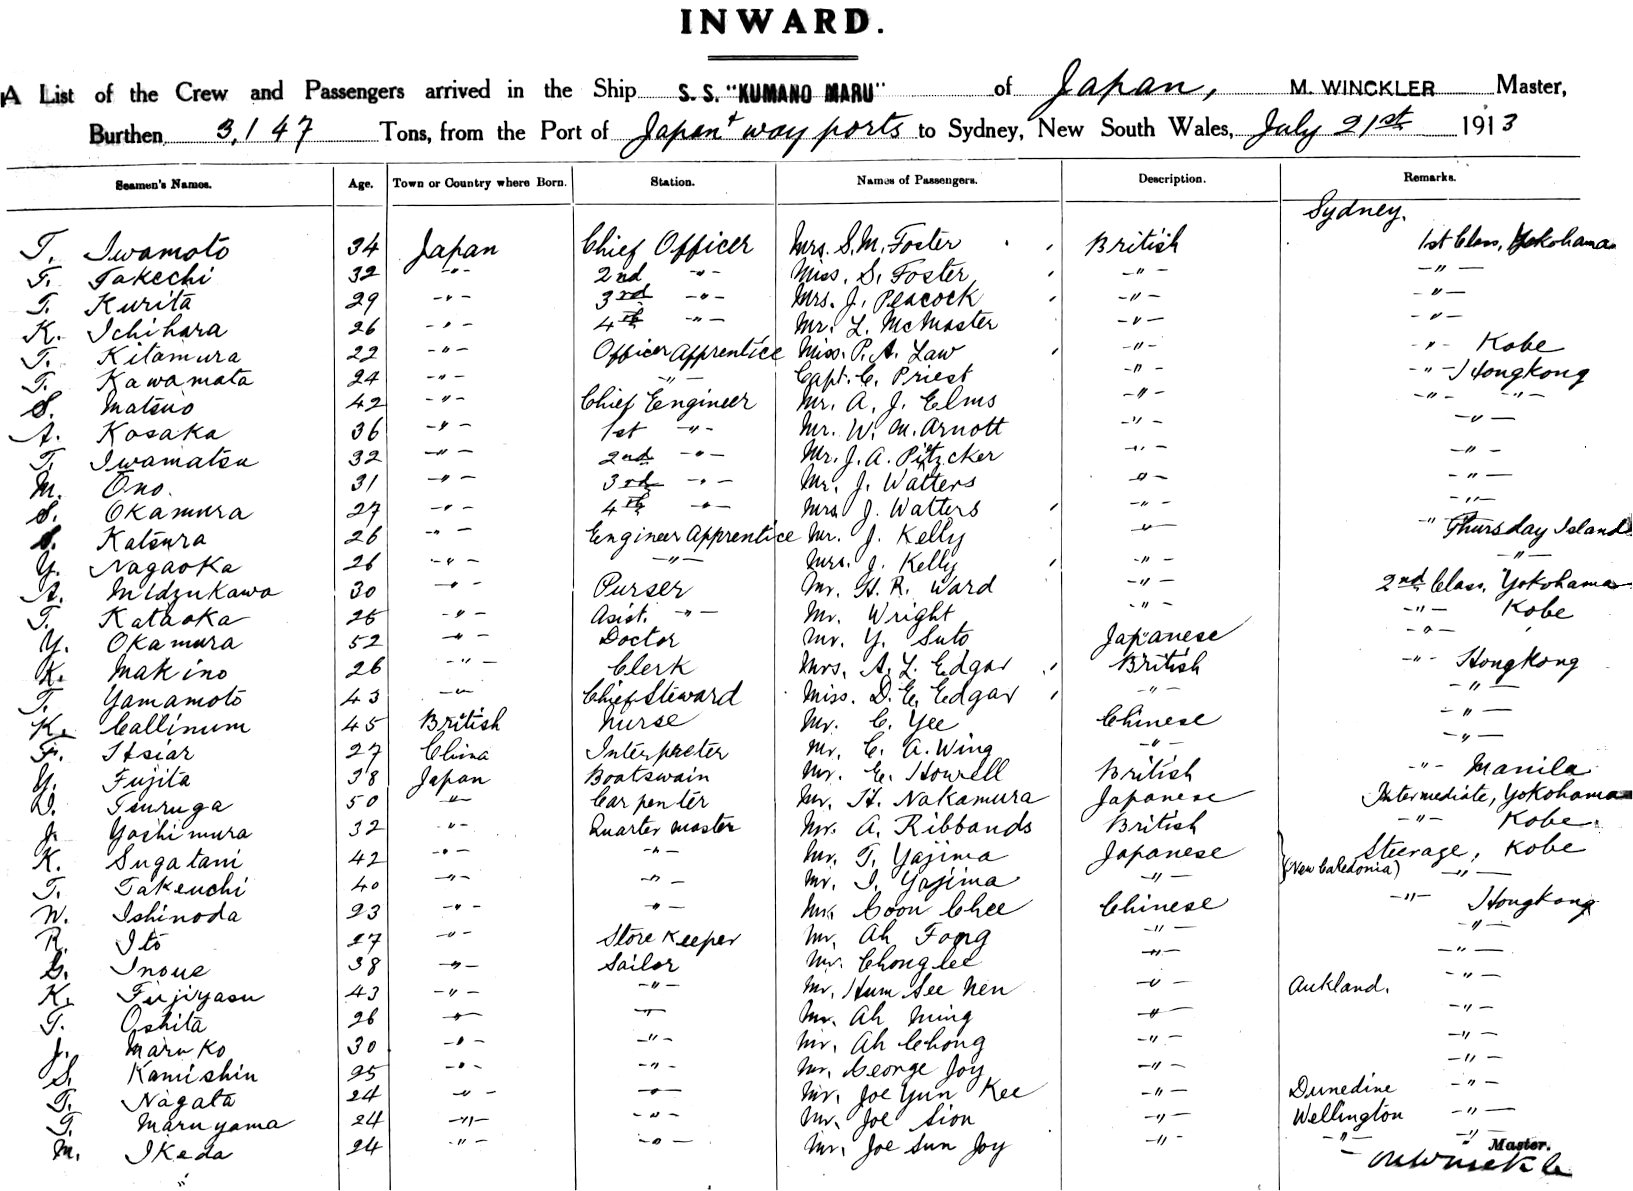 INWARD.
A List of the Crew and Passengers arrived in the Ship S. S. "KUMANO MARU" of Japan, M. WINCKLER Master,
Burthen 3,147 Tons, from the Port of Japan + way ports to Sydney, New South Wales, July 21st 1913
Seamen's Names. Age. Town or Country where Born. Station. Names of Passengers. Description. Remarks.
Sydney.
T. Iwamoto 34 Japan Chief Officer Mrs. S. M. Foster British 1st Class, Yokohama
T. Takechi 32 -"- 2nd -"- Miss. S. Foster -"- -"-
T. Kurita 29 -"- 3rd -"- Mrs. J. Peacock -"- -"-
K. Ichihara 26 -"- 4th -"- Mr. L. McMaster -"- -"-
T. Kitamura 22 -"- Officer Apprentice Miss. P. A. Law -"- -"- Kobe
T. Kawamata 24 -"- -"- Capt. C. Priest -"- -"- Hongkong
S. Matsuo 42 -"- Chief Engineer Mr. A. J. Elms -"- -"- -"-
A. Kosaka 36 -"- 1st -"- Mr. W. M. Arnott -"- -"-
T. Iwamatsu 32 -"- 2nd -"- Mr. J. A. Pitzcker -"- -"-
M. Ono. 31 -"- 3rd -"- Mr. J. Watters -"- -"-
S. Okamura 27 -"- 4th -"- Mrs J. Watters -"- -"-
S. Katsura 26 -"- Engineer Apprentice Mr. J. Kelly -"- -"- Thursday Island
Y. Nagaoka 26 -"- -"- Mrs. J. Kelly -"- -"-
A. Midzukawa 30 -"- Purser Mr. H. R. Ward -"- 2nd Class, Yokohama
T. Kataoka 25 -"- Asist. -"- Mr. Wright -"- -"- Kobe
Y. Okamura 52 -"- Doctor Mr. Y. Suto Japanese -"-
K. Makino 26 -"- Clerk Mrs. A. L. Edgar British -"- Hongkong
T. Yamamoto 43 -"- Chief Steward Miss. D. E. Edgar -"- -"-
K. Callinum 45 British Nurse Mr. C. Yee Chinese -"-
F. Hsiar 27 China Interpreter Mr. C. A. Wing -"- -"-
Y. Fujita 38 Japan Boatswain Mr. E. Howell British -"- Manila
D. Tsuruga 50 -"- Carpenter Mr. H. Nakamura Japanese Intermediate, Yokohama
J. Yoshimura 32 -"- Quarter master Mr. A. Ribbands British -"- Kobe.
K. Sugatani 42 -"- -"- Mr. T. Yajima Japanese Steerage, Kobe
T. Takeuchi 40 -"- -"- Mr. I. Yajima -"- (New Caledonia) -"-
N. Ishinoda 23 -"- -"- Mr. Coon Chee Chinese -"- Hongkong
R. Ito 27 -"- Store Keeper Mr. Ah Fong -"- -"-
G. Inoue 38 -"- Sailor Mr. Chong lee -"- -"-
K. Fujiyasu 43 -"- -"- Mr. Hum See Nen -"- Auckland. -"-
T. Oshita 26 -"- -"- Mr. Ah Ming -"- -"-
J. Maruko 30 -"- -"- Mr. Ah Chong -"- -"-
S. Kamishin 25 -"- -"- Mr. George Joy -"- -"-
T. Nagata 24 -"- -"- Mr. Joe Yun Kee -"- Dunedine -"-
T. Maruyama 24 -"- -"- Mr. Joe Sion -"- Wellington -"-
M. Ikeda 24 -"- -"- Mr. Joe Sun Joy -"- -"- -"-
Master.
M Winckler